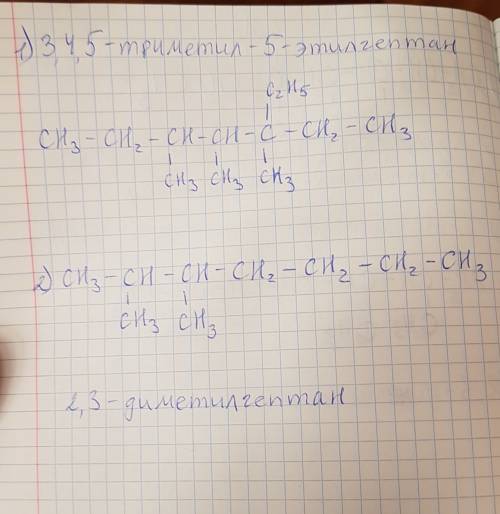 1) 3,4,5-триметил-5-этилгептан
C2H5
CH3 - CH2 - CH - CH - C - CH2 - CH3
CH3 CH3 CH3
2) CH3 - CH - CH - CH2 - CH2 - CH2 - CH3
CH3 CH3
2,3-диметилгептан